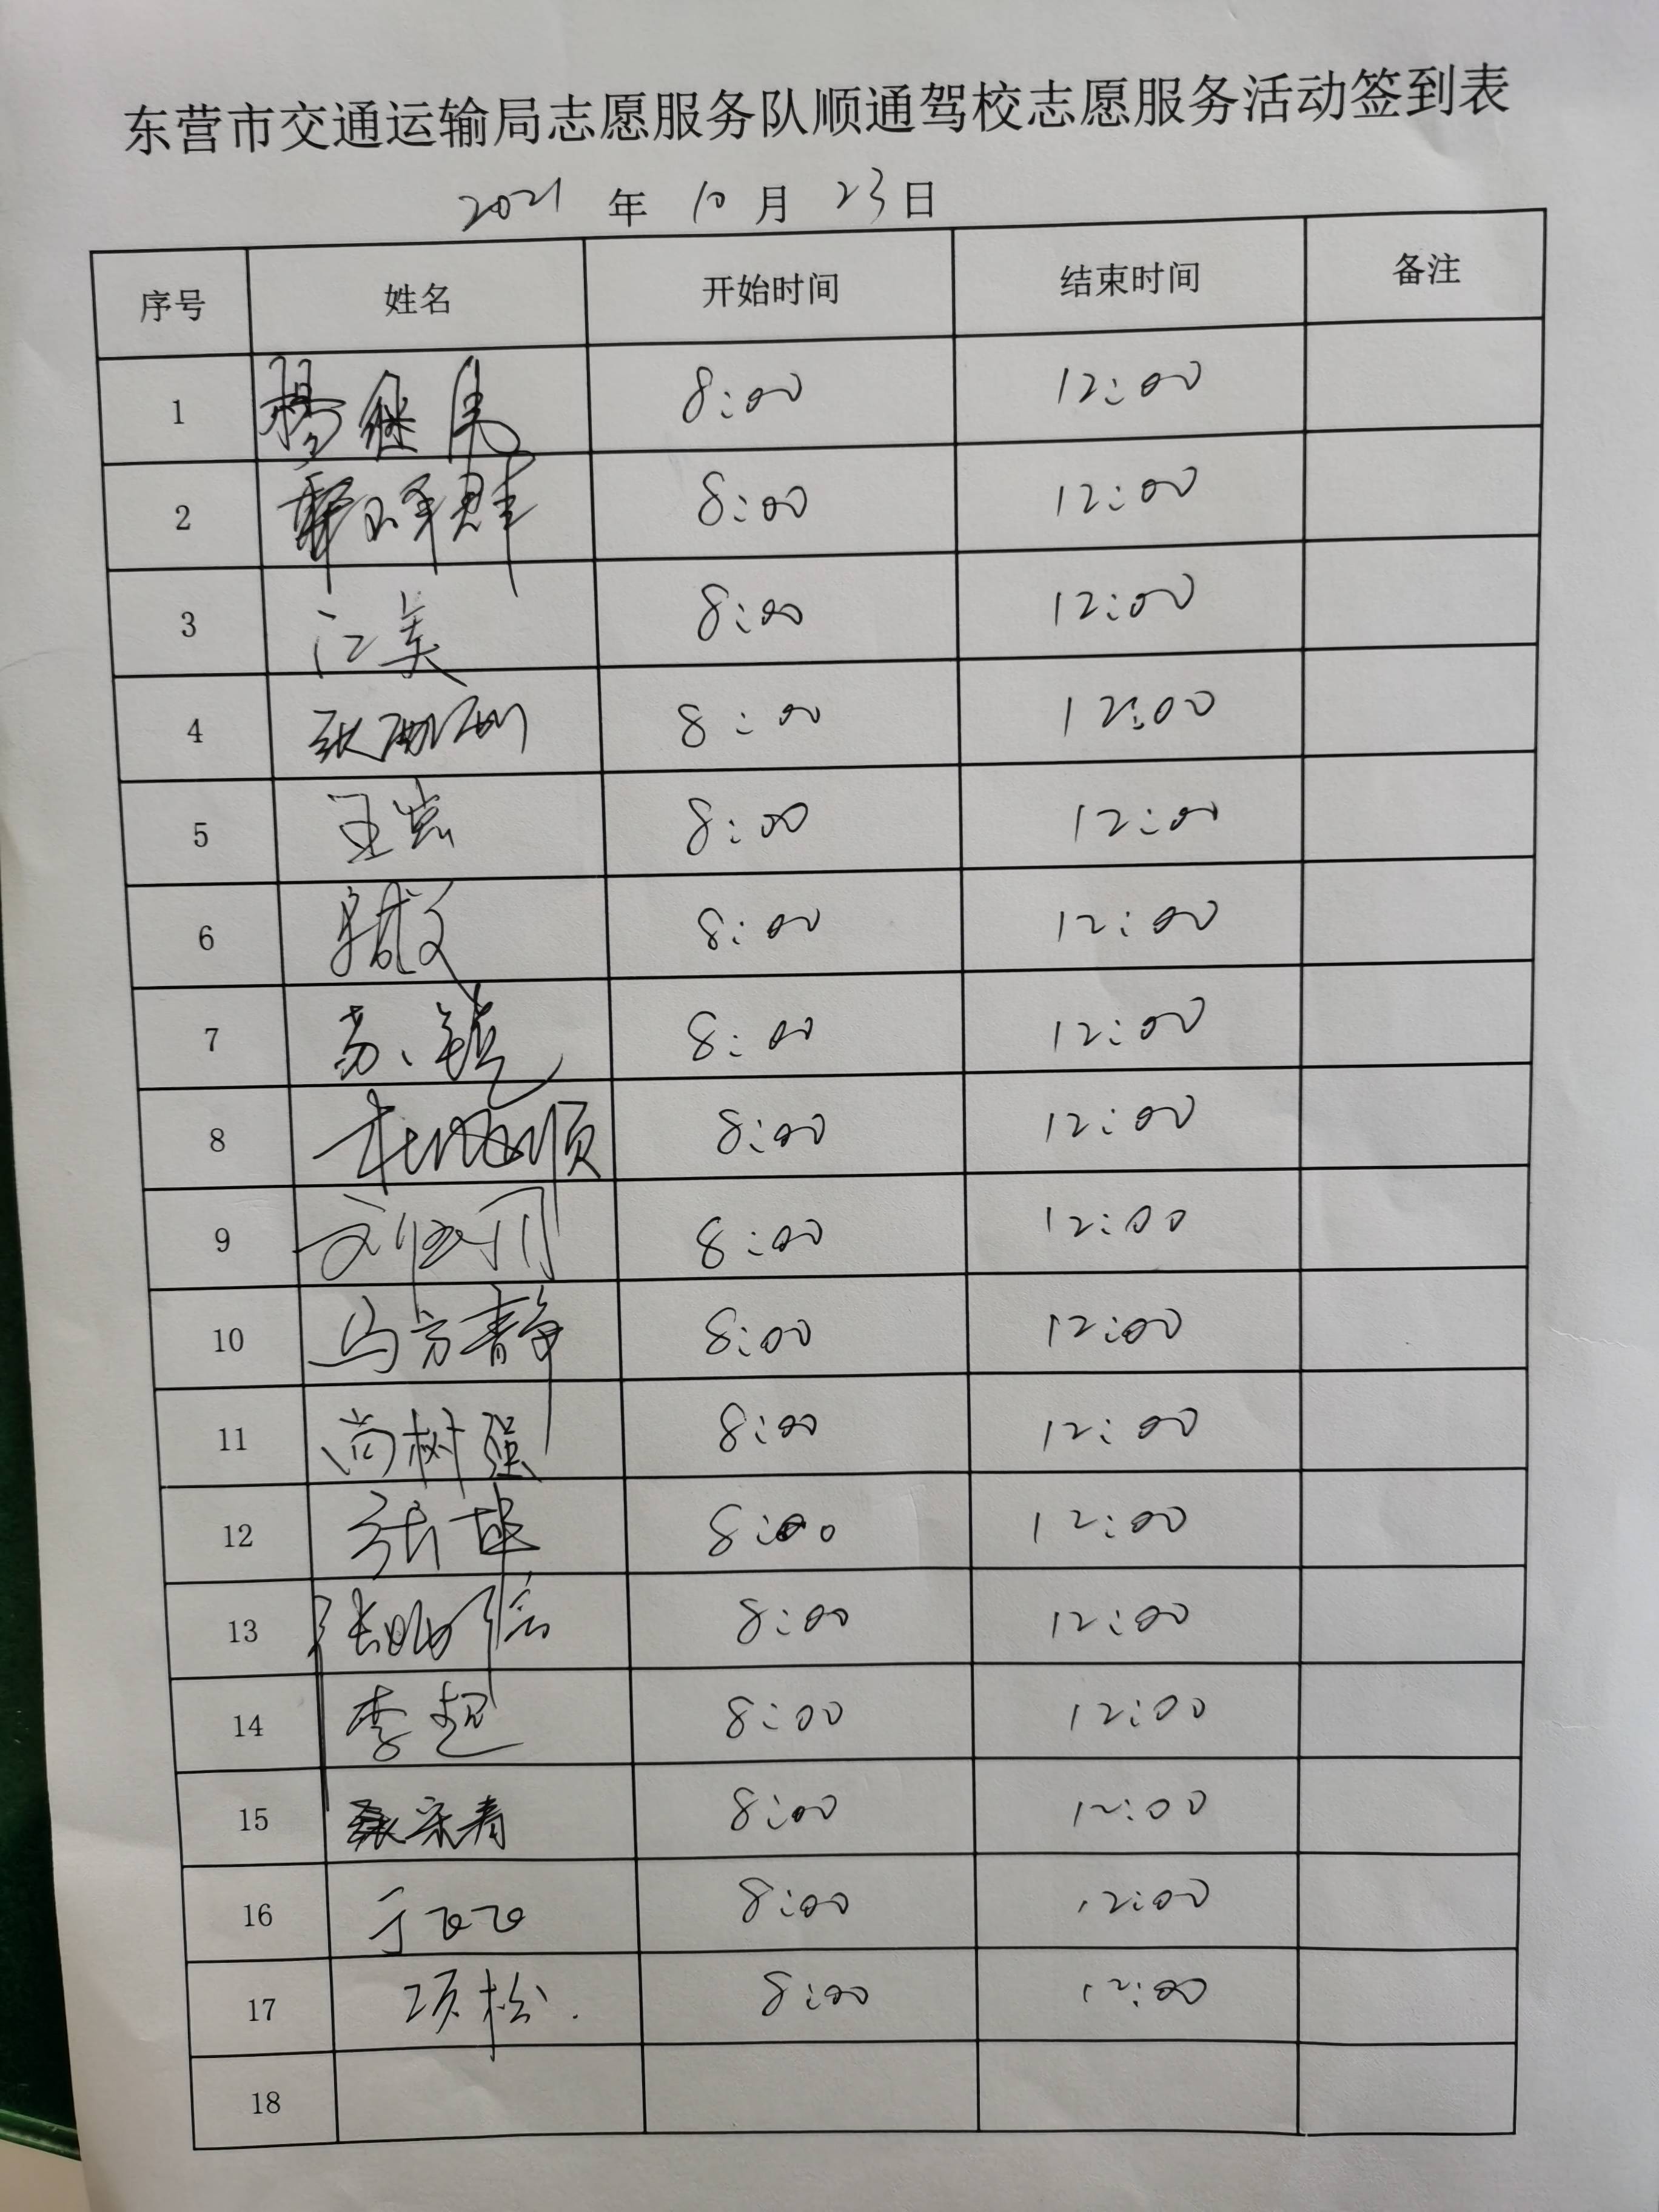 东营市交通运输局志愿服务队顺通驾校志愿服务活动签到表
2021 年 10 月 23 日
序号 姓名 开始时间 结束时间 备注
1 杨继 8:00 12:00
2 8:00 12:00
3 江美 8:00 12:00
4 张丽丽 8:00 12:00
5 王岩 8:00 12:00
6 8:00 12:00
7 苏 8:00 12:00
8 杜 顺 8:00 12:00
9 刘 8:00 12:00
10 马方静 8:00 12:00
11 尚树强 8:00 12:00
12 张坤 8:00 12:00
13 张 8:00 12:00
14 李超 8:00 12:00
15 8:00 12:00
16 于飞飞 8:00 12:00
17 项松. 8:00 12:00
18